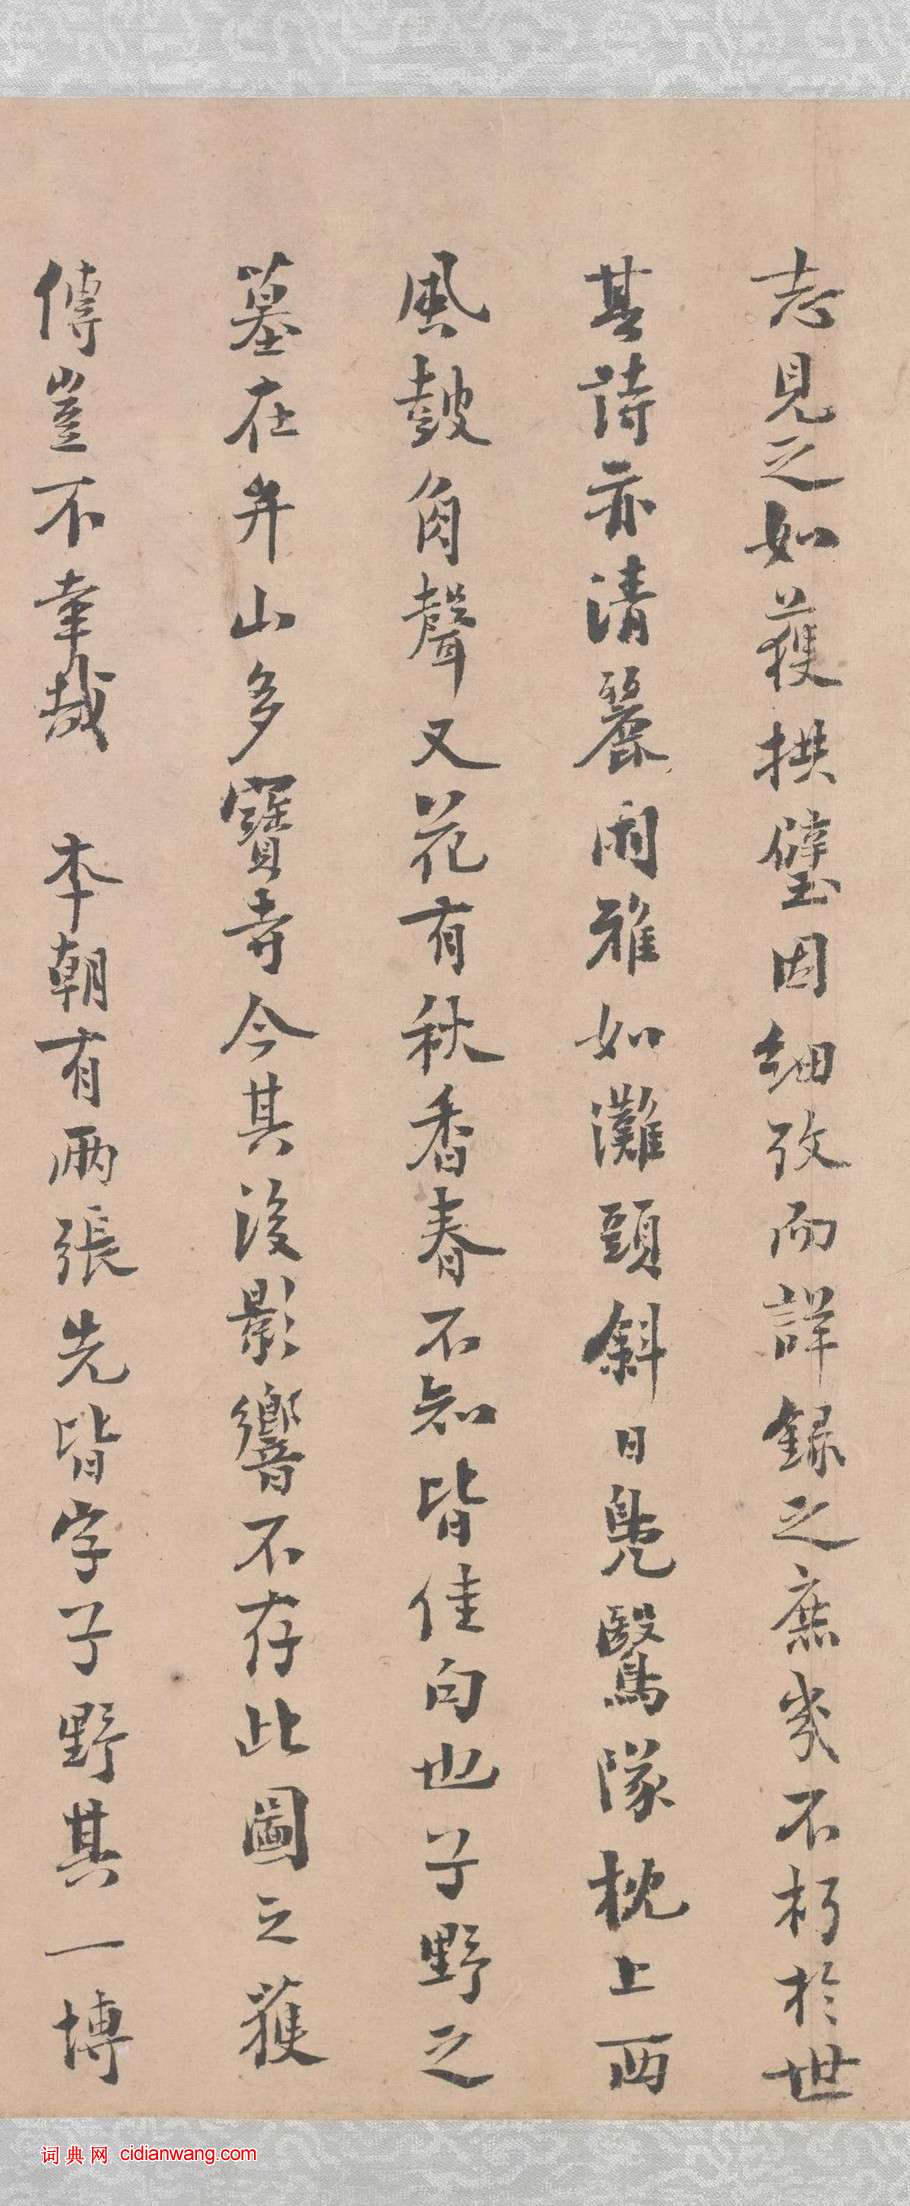 志見之如獲拱璧因細攷而詳錄之庶㡬不朽於世
其詩亦清麗閑雅如灘頭斜日鳧鷖隊枕上西
風鼓角聲又花有秋香春不知皆佳句也子野之
墓在弁山多寶寺今其後影響不存此圖之獲
傳豈不幸哉 本朝有兩張先皆字子野其一博
词典网 cidianwang.com